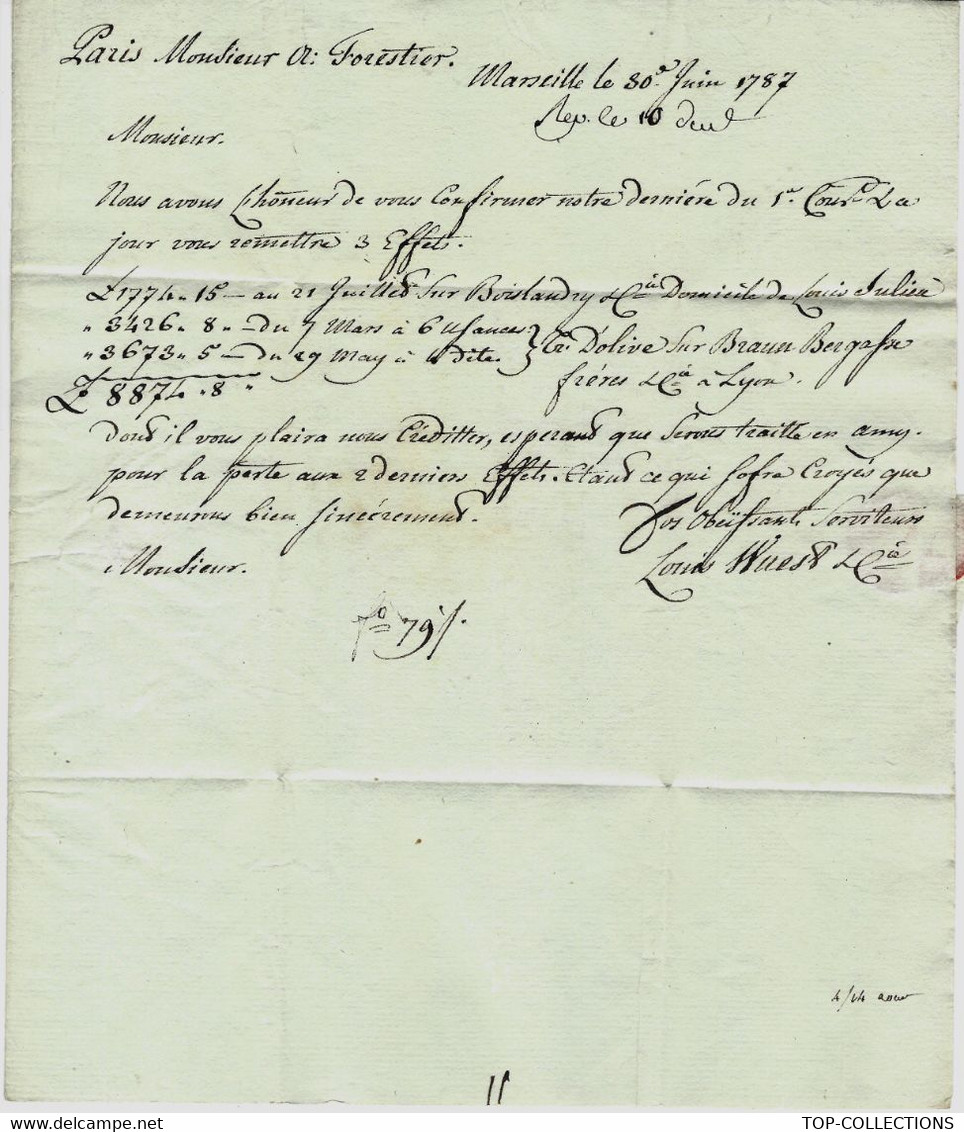 Paris Monsieur A: Forestier.
Marseille le 30e Juin 1787
Rep. le 10 dud
Monsieur.
Nous avons Lhoneur de vous Confirmer notre derniére du 1er. Cour.t & a
jour vous remettre 3 Effets.
£ 1774 " 15 — au 21 Juillet sur Boislandry & Cie Domicile de Louis Julien
" 3426 " 8 " — du 7 Mars à 6 Usances } Tre. D'olive sur Braun Bergasse
" 3673 " 5 — du 29 May à 4 dite. fréres & Cie à Lyon.
£ 8874 " 8 "
dont il vous plaira nous Créditter, esperant que Serons traitté en amy.
pour la perte aux 2 derniers Effets. Etant ce qui sofre Croyés que
demeurons bien sincérement. Vos Obeïssants Serviteurs
Monsieur. Louis Wuest & Cie
fo 79
4/14 aour
TOP-COLLECTIONS